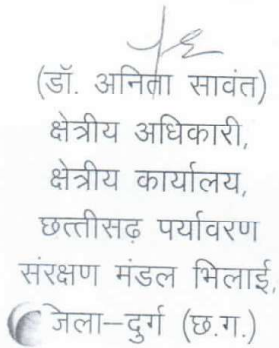 (डॉ. अनिता सावंत)
क्षेत्रीय अधिकारी,
क्षेत्रीय कार्यालय,
छत्तीसढ़ पर्यावरण
संरक्षण मंडल भिलाई,
जिला–दुर्ग (छ.ग.)